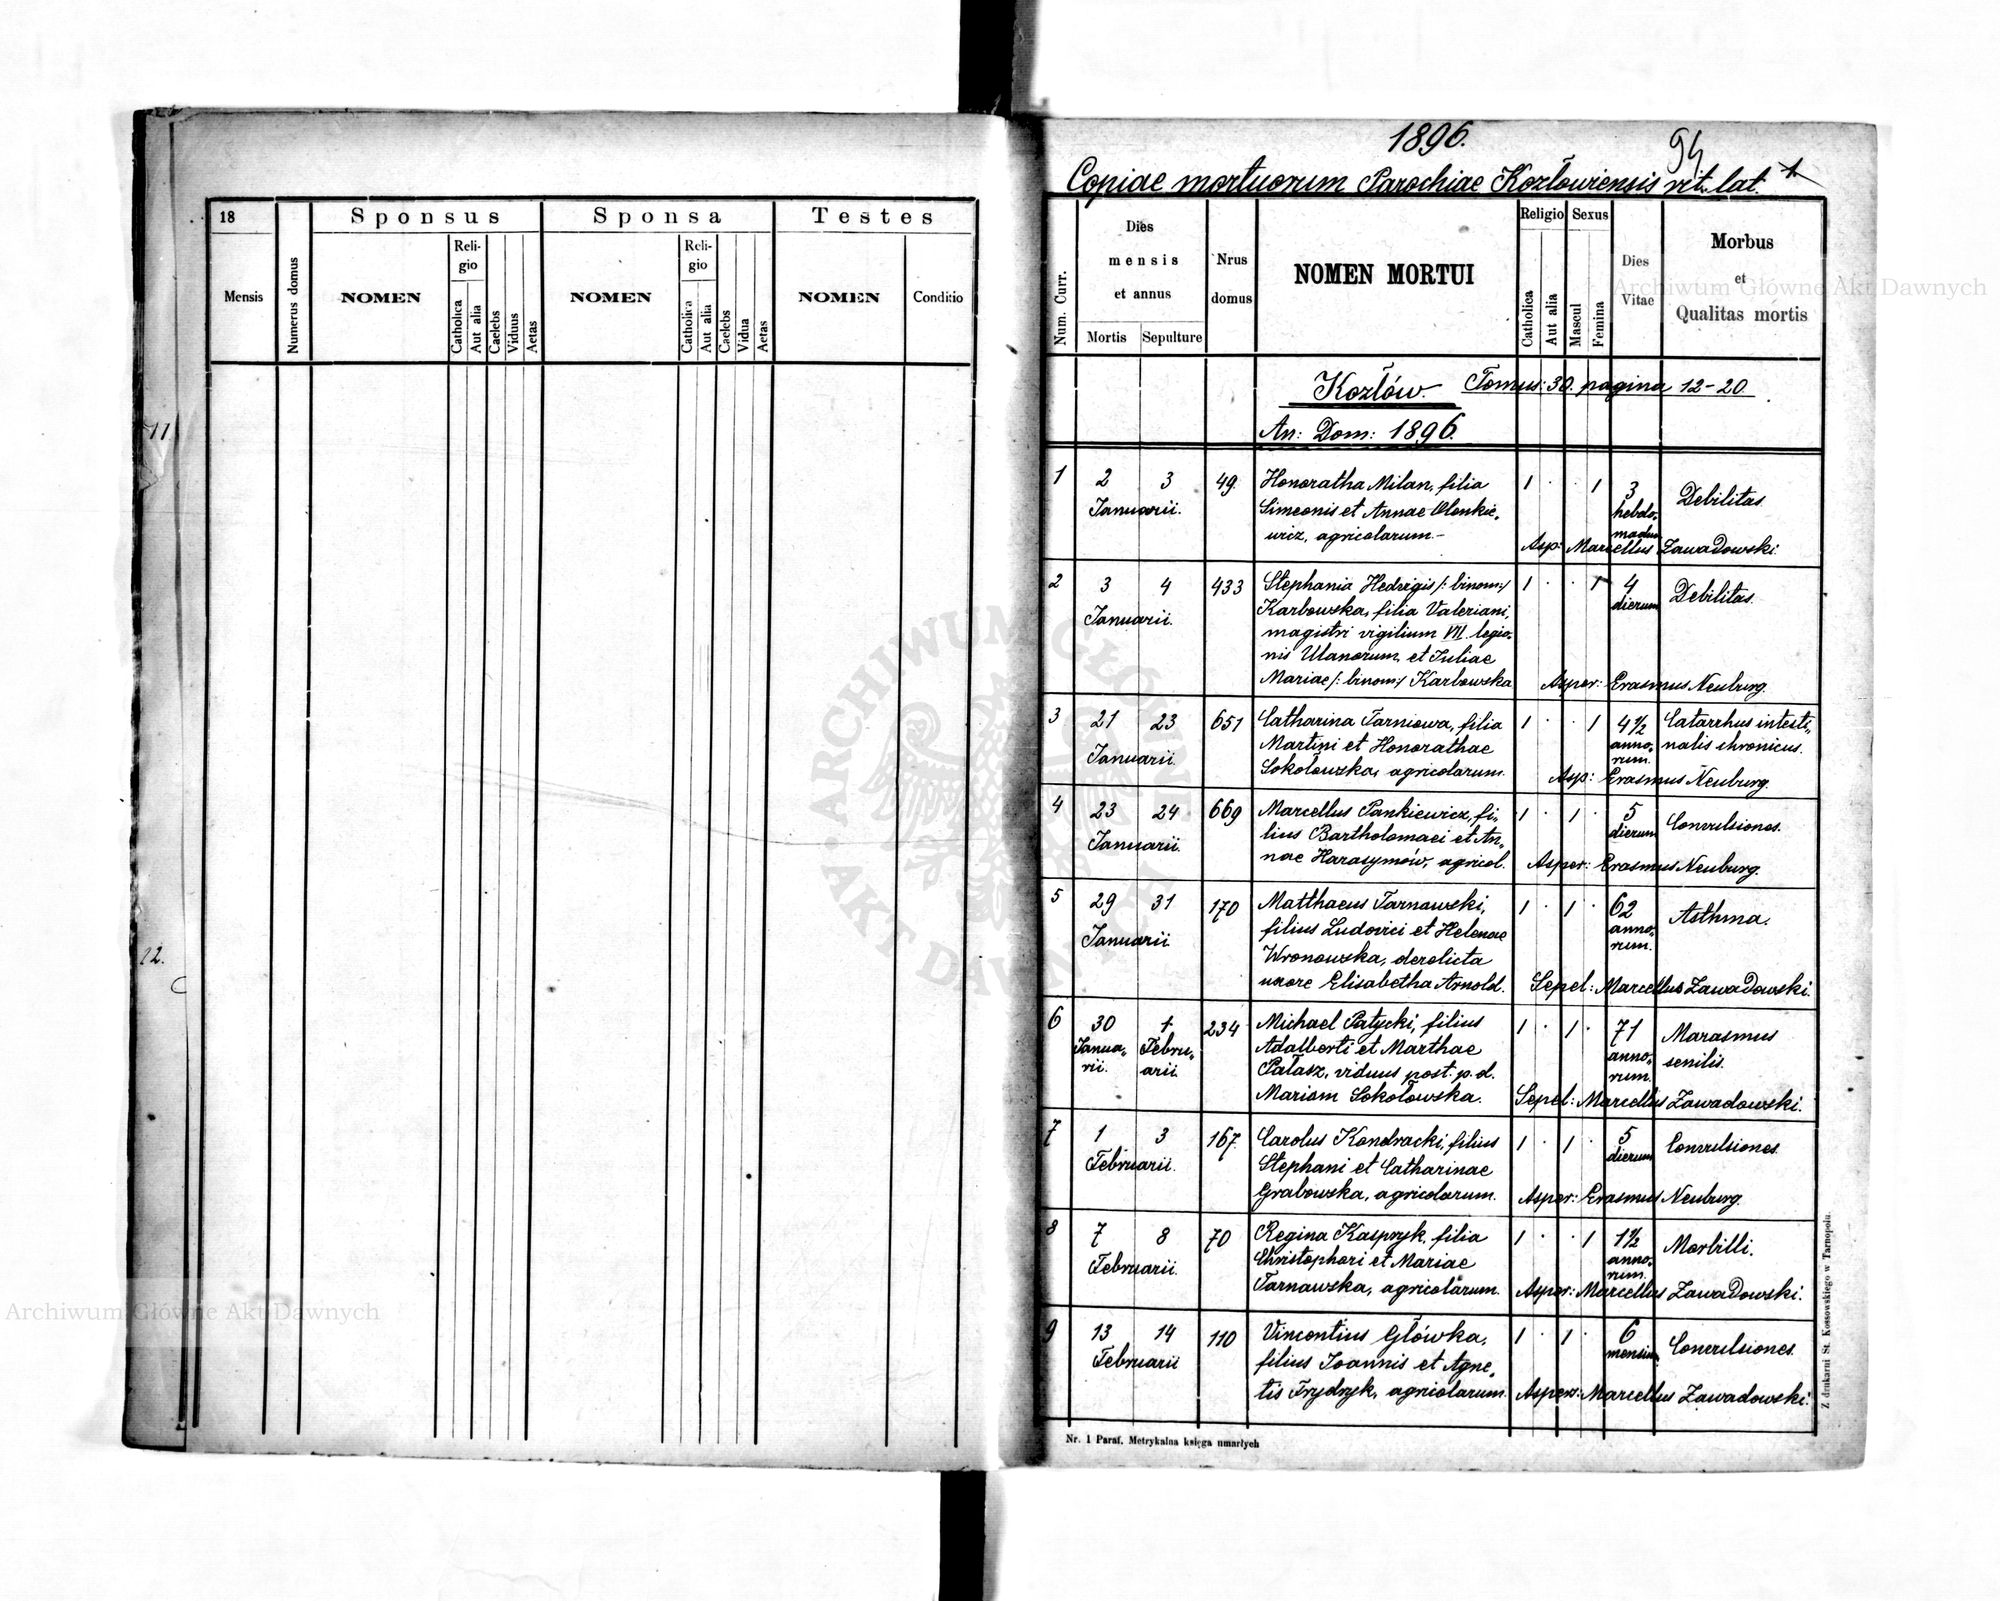 11.
12.
18
Mensis
Numerus domus
Sponsus
NOMEN
Reli-
gio
Catholica
Aut alia
Caelebs
Viduus
Aetas
Sponsa
NOMEN
Reli-
gio
Catholica
Aut alia
Caelebs
Vidua
Aetas
Testes
NOMEN
Conditio
1896.
94
Copiae mortuorum Parochiae Kozłowiensis rit. lat. 1.
Num. Curr.
Dies
mensis
et annus
Mortis Sepulture
Nrus
domus
NOMEN MORTUI
Religio
Catholica
Aut alia
Sexus
Mascul
Femina
Dies
Vitae
Morbus
et
Qualitas mortis
Kozłów. Tomus: 30. pagina 12-20.
An: Dom: 1896.
1 2 3 49. Honoratha Milan, filia 1 . . 1 3 Debilitas.
Januarii. Simeonis et Annae Olenkie„ hebdo„
wicz, agricolarum.- madum
Asp: Marcellus Zawadowski.
2 3 4 433 Stephania Hedvigis /: binom:/ 1 . . 1 4 Debilitas.
Januarii. Karbowska, filia Valeriani, dierum
magistri vigilium VII. legio„
nis Ulanorum, et Juliae
Mariae /: binom:/ Karbowska Asper: Erasmus Neuburg.
3 21 23 651 Catharina Tarniowa, filia 1 . . 1 4 1/2 Catarrhus intesti„
Januarii. Martini et Honorathae anno„ nalis chronicus.
Sokolowska, agricolarum. rum.
Asp: Erasmus Neuburg.
4 23 24 669 Marcellus Pankiewicz, fi„ 1 . 1 . 5 Convulsiones.
Januarii. lius Bartholomaei et An„ dierum
nae Harasymów, agricol. Asper: Erasmus Neuburg.
5 29 31 170 Matthaeus Tarnawski, 1 . 1 . 62 Asthma.
Januarii. filius Ludovici et Helenae anno„
Wronowska, derelicta rum.
uxore Elisabetha Arnold. Sepel: Marcellus Zawadowski.
6 30 1. 234 Michael Patycki, filius 1 . 1 . 71 Marasmus
Janua„ Febru„ Adalberti et Marthae anno„ senilis.
rii. arii Pałasz, viduus post. p. d. rum.
Mariam Sokołowska. Sepel: Marcellus Zawadowski.
7 1 3 167. Carolus Kondracki, filius 1 . 1 . 5 Convulsiones.
Februarii. Stephani et Catharinae dierum
Grabowska, agricolarum. Asper: Erasmus Neuburg.
8 7 8 70 Regina Kasprzyk, filia 1 . . 1 1 1/2 Morbilli.
Februarii. Christophori et Mariae anno„
Tarnawska, agricolarum. rum.
Asper: Marcellus Zawadowski.
9 13 14 110 Vincentius Główka, 1 . 1 . 6 Convulsiones.
Februarii filius Joannis et Agne„ mensium
tis Frydryk, agricolarum. Aspers: Marcellus Zawadowski.
Nr. 1 Paraf. Metrykalna księga umarłych
Z drukarni St. Kossowskiego w Tarnopolu.
ARCHIWUM GŁÓWNE AKT DAWNYCH
Archiwum Główne Akt Dawnych
Archiwum Główne Akt Dawnych